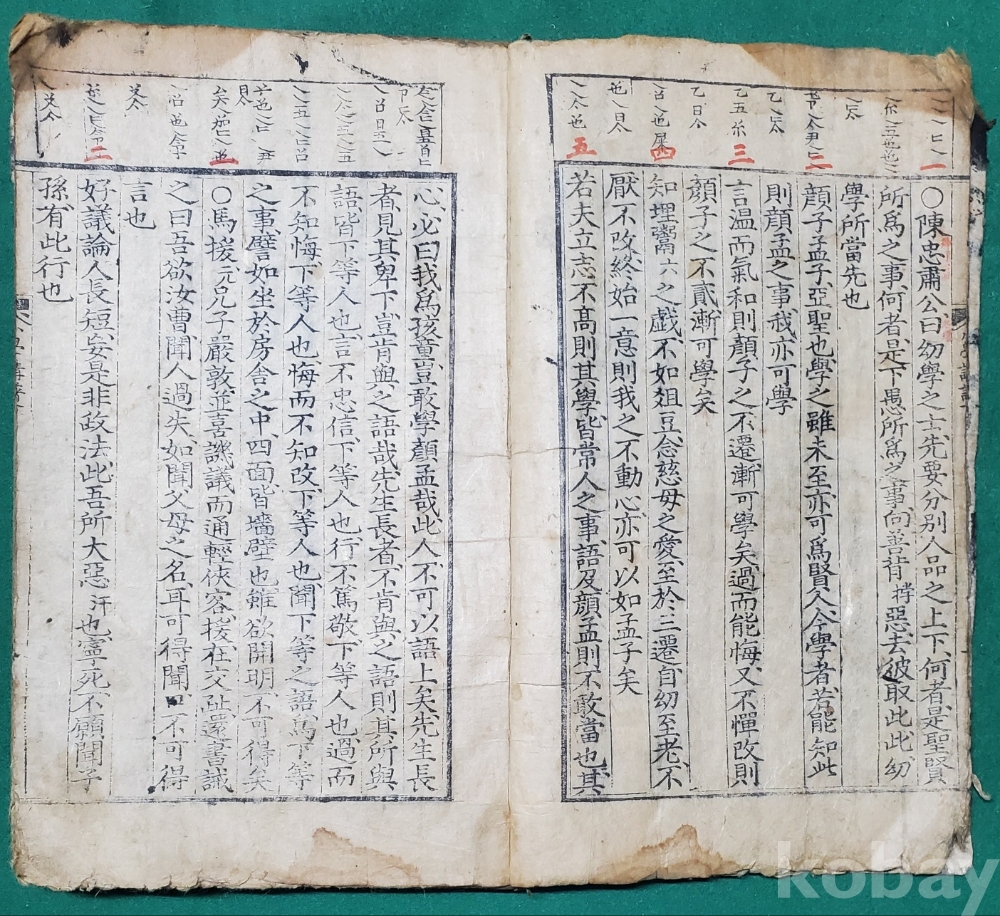 一
三
三
四
五
○陳忠肅公曰幼學之士先要分別人品之上下何者是聖賢
所爲之事何者是下愚所爲之事向善背惡去彼取此此幼
學所當先也
顔子孟子亞聖也學之雖未至亦可爲賢人今學者若能知此
則顔孟之事我亦可學
言温而氣和則顔子之不遷漸可學矣過而能悔又不憚改則
顔子之不貳漸可學矣
知埋鬻六之戱不如俎豆念慈母之愛至於三遷自幼至老不
厭不改終始一意則我之不動心亦可以如孟子矣
若夫立志不高則其學皆常人之事語及顔孟則不敢當也其
二
二
心必曰我爲孩童豈敢學顔孟哉此人不可以語上矣先生長
者見其卑下豈肯與之語哉先生長者不肯與之語則其所與
語皆下等人也言不忠信下等人也行不篤敬下等人也過而
不知悔下等人也悔而不知改下等人也聞下等之語爲下等
之事譬如坐於房舍之中四面皆墻壁也雖欲開明不可得矣
○馬援兄子嚴敦並喜譏議而通輕俠客援在交趾還書誡
之曰吾欲汝曹聞人過失如聞父母之名耳可得聞口不可得
言也
好議論人長短妄是非政法此吾所大惡汙也寧死不願聞子
孫有此行也
kobay